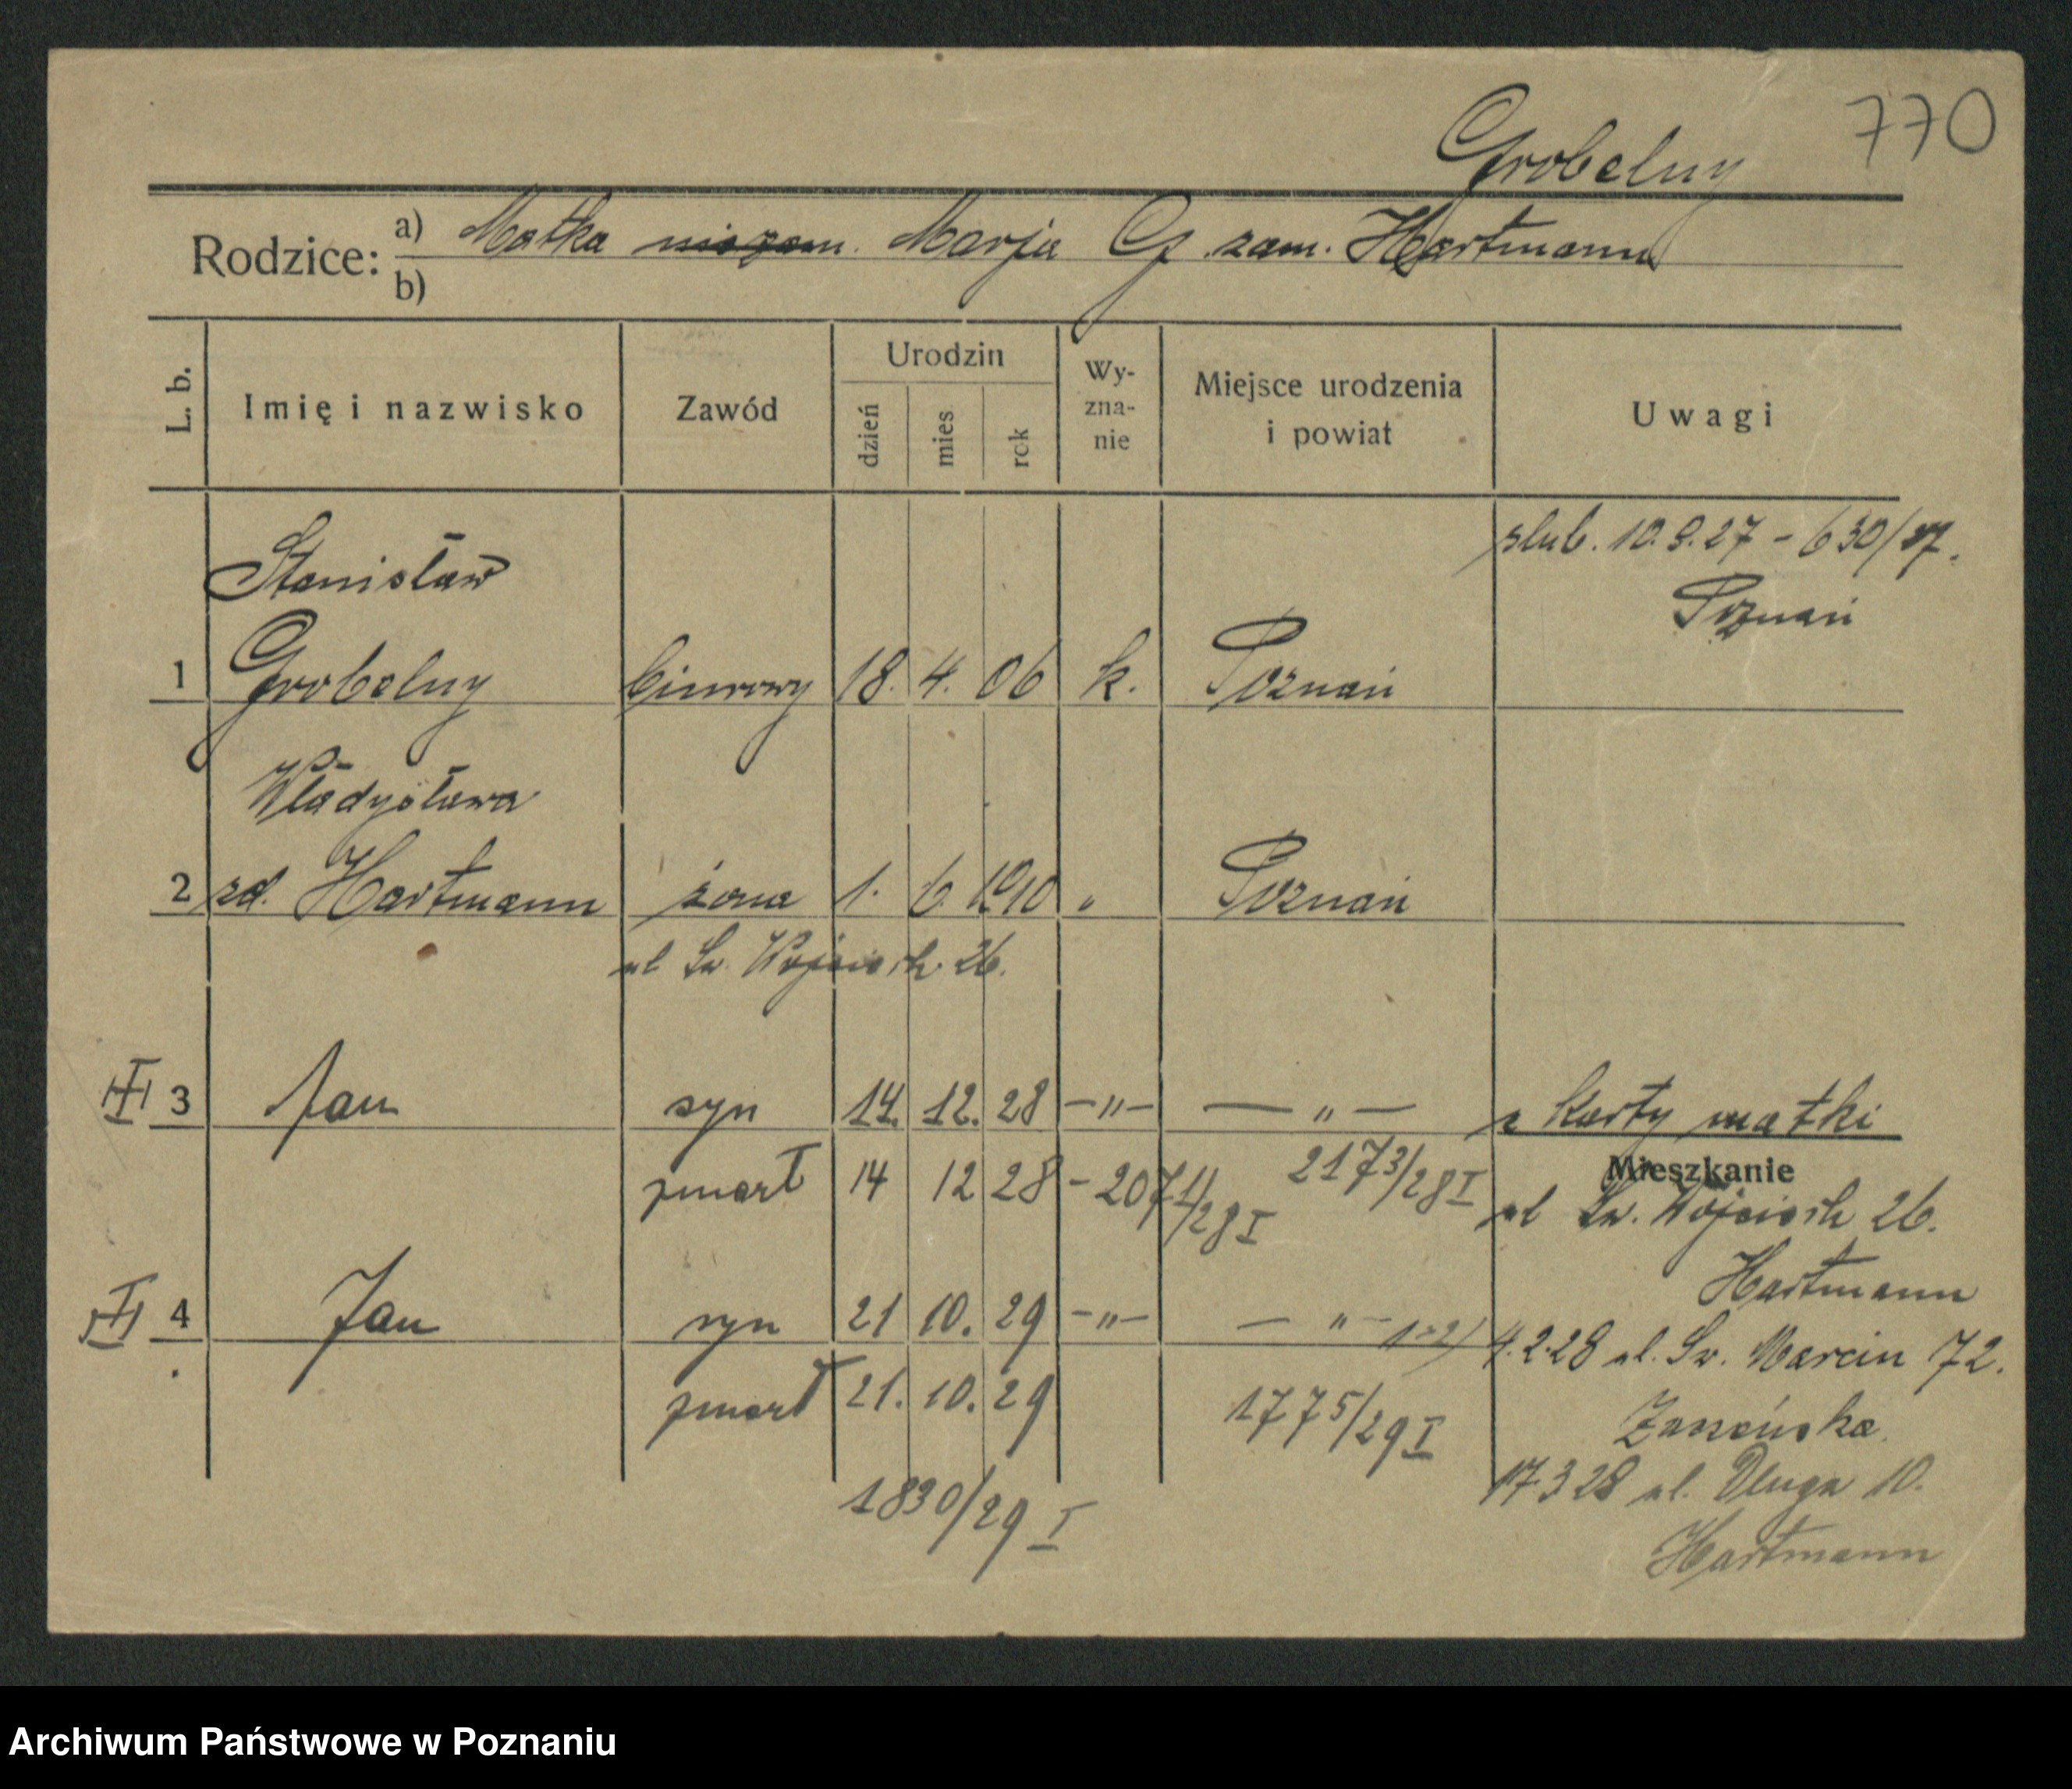 770
Grobelny
Rodzice: a) Matka niezam. Marja G. zam. Hartmann
b)
L. b. Imię i nazwisko Zawód Urodzin dzień mies. rok Wy-zna-nie Miejsce urodzenia i powiat Uwagi
ślub. 10.9.27 - 630/27.
Poznań
Stanisław
1 Grobelny biurowy 18. 4. 06 k. Poznań
Władysława
2 zd. Hartmann żona 1. 6. 1910 " Poznań
ul Św. Wojciech 26.
III 3 Jan syn 14. 12. 28 -"- -"- z karty matki
zmarł 14 12 28 - 2071/28 I 2173/28 I
Mieszkanie
ul Św. Wojciech 26.
Hartmann
III 4 Jan syn 21 10. 29 -"- -"-
1-2) 4.2.28 ul. Św. Marcin 72.
zmarł 21. 10. 29 1775/29 I
17.3 28 ul. Długa 10.
1830/29 I
Hartmann
Archiwum Państwowe w Poznaniu